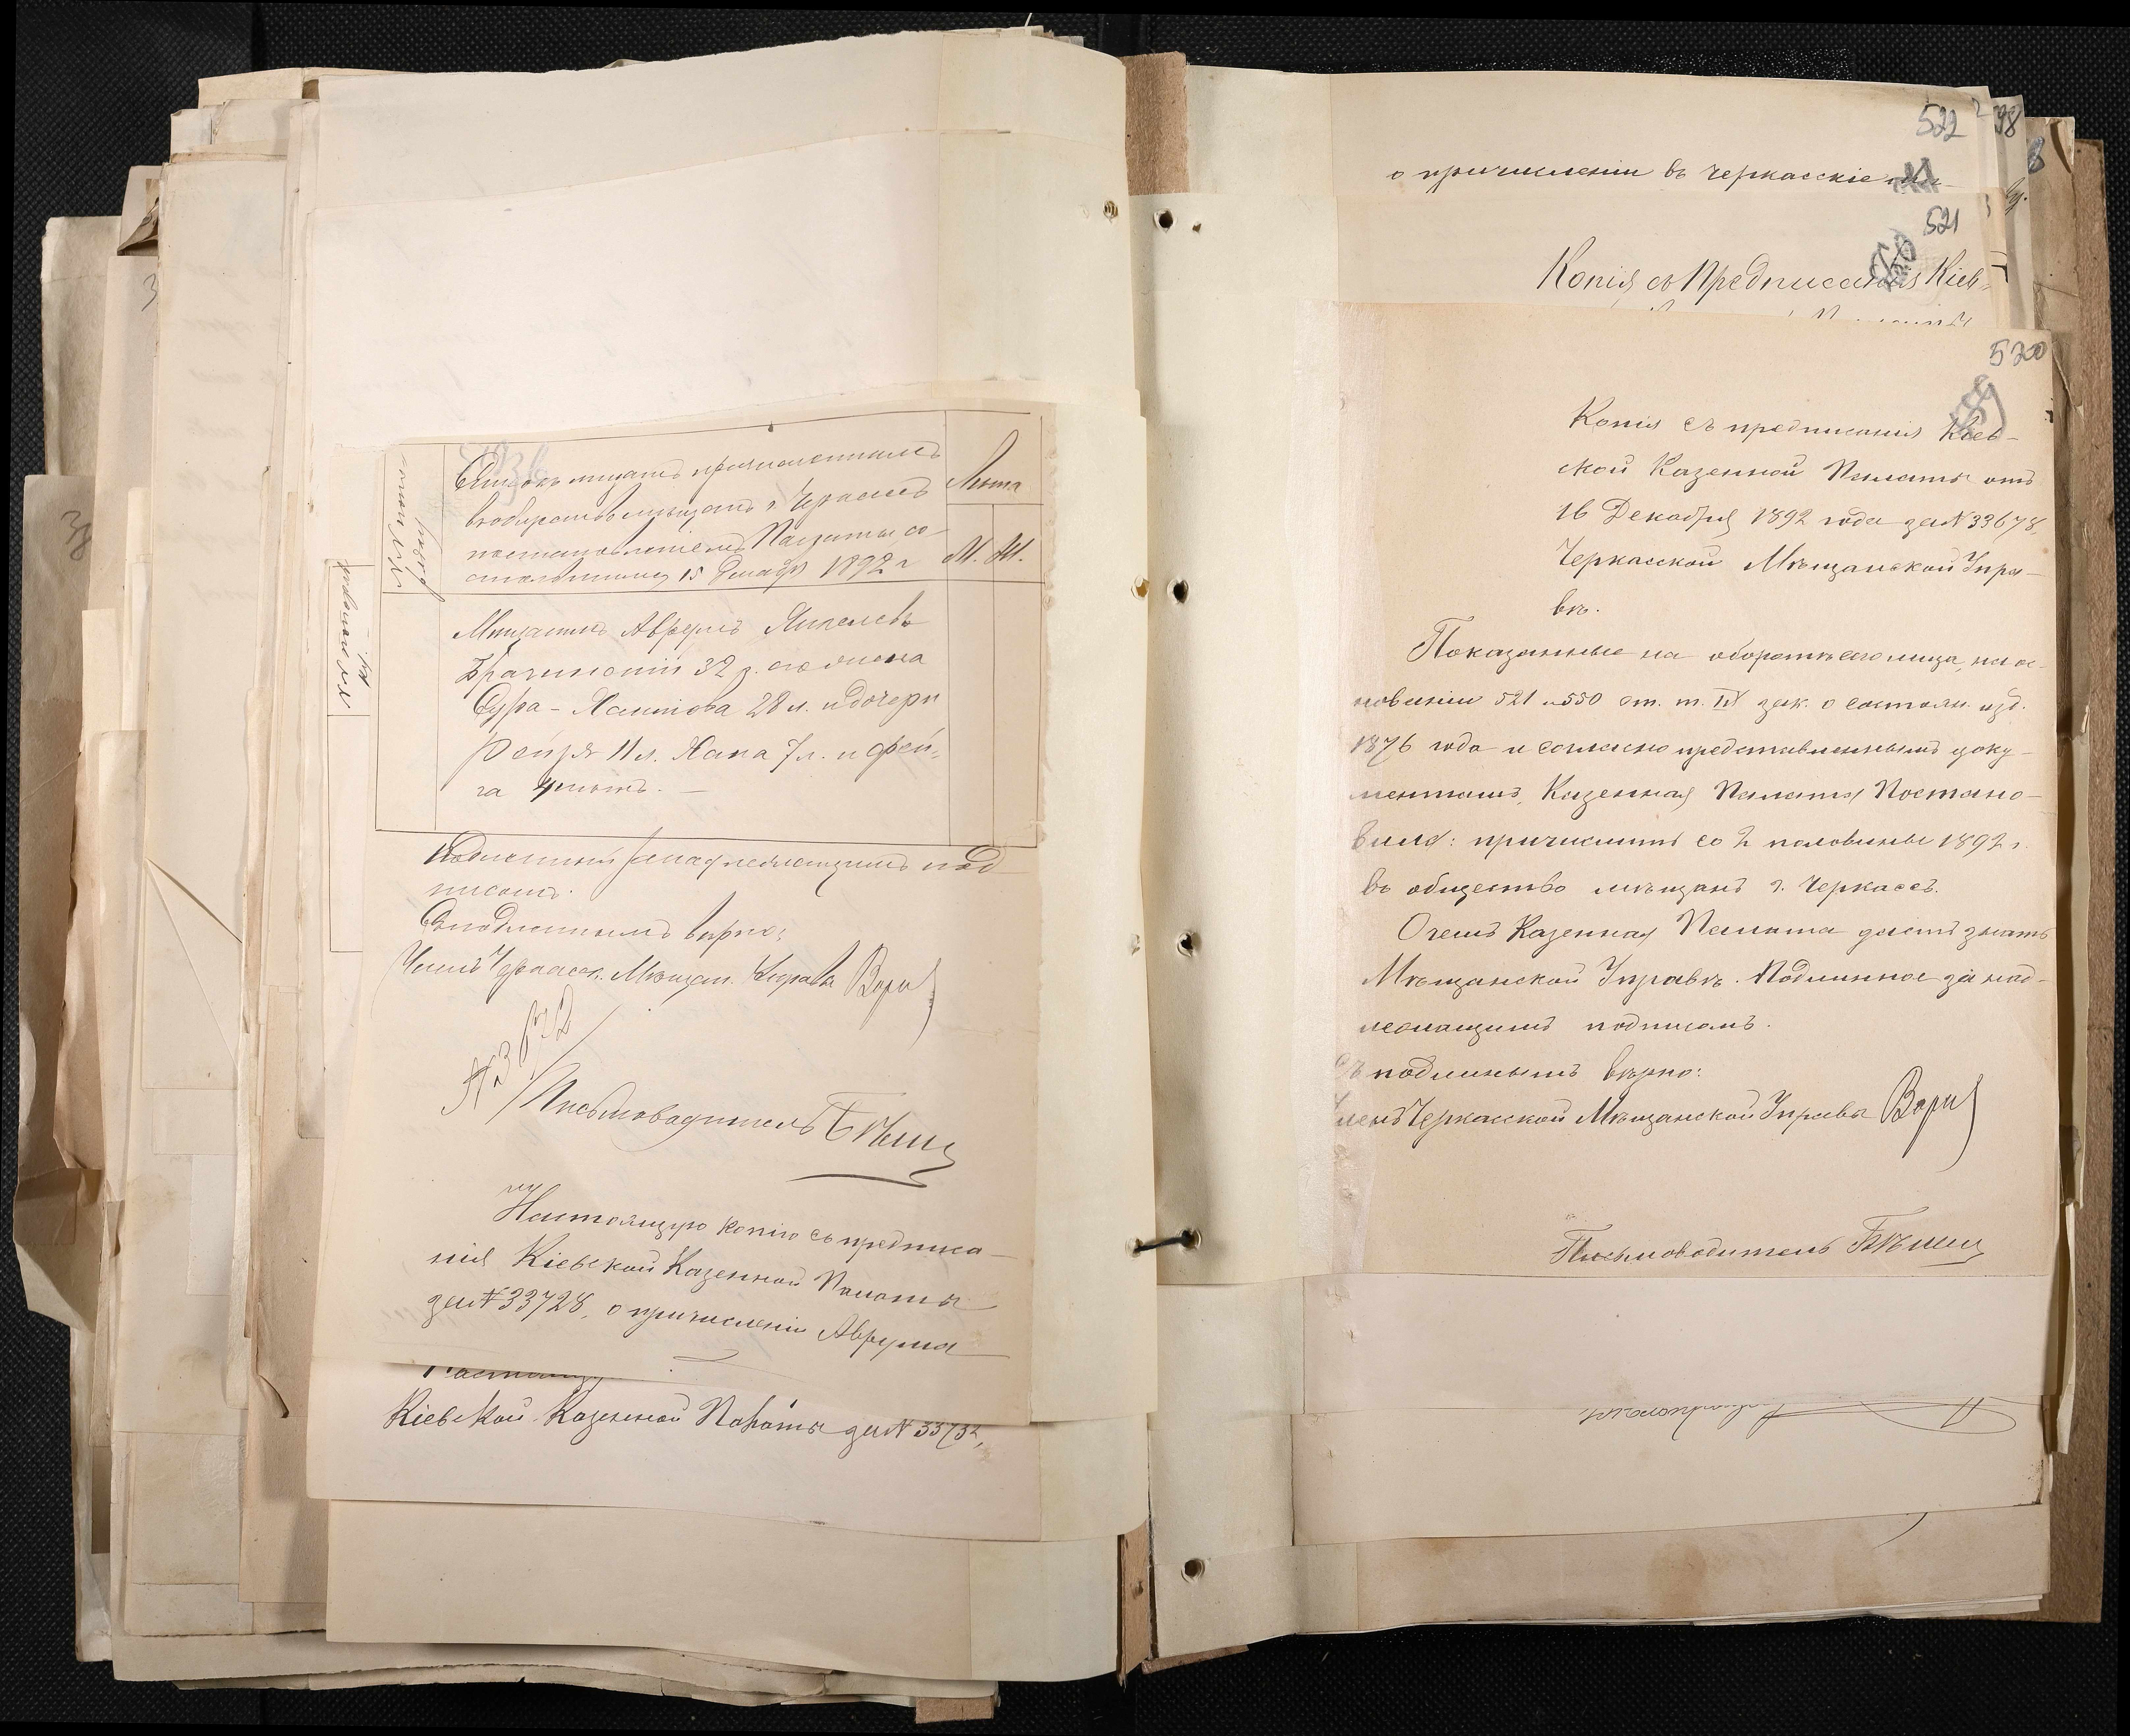 Списокъ лицамъ причисленнымъ
въ общество мѣщанъ г. Черкассъ
постановленіемъ Палаты со-
стоявшимся 15 Декабря 1892 г
Лѣта
М. Ж.
Мѣщанинъ Аврумъ Янкелевъ
32 г. его жена
Сура-Хаимова 28 л. и дочери
Рейзя 11 л. Хана 7 л. и Фей-
га 4 лѣтъ. –
Подлинный за надлежащимъ под
писомъ.
Съ подлиннымъ вѣрно:
Членъ Черкасск. Мѣщан. Управы
Письмоводитель
Настоящую копію съ предписа-
нія Кіевской Казенной Палаты
за № 33728, о причисленіи Аврума
Кіевской Казенной Палаты за № 33732,
522
о причисленіи въ черкасскіе
521
Копія съ Предписанія Кіев-
520
Копія съ предписанія Кіев-
ской Казенной Палаты отъ
16 Декабря 1892 года за № 33678,
Черкасской Мѣщанской Упра-
вѣ.
Показанные на оборотѣ сего лица, на ос-
новании 521 и 550 ст. т. IX зак. о состоян. изд.
1876 года и согласно представленнымъ доку-
ментамъ, Казенная Палата Постано-
вила: причислить со 2 половины 1892 г.
въ общество мѣщанъ г. Черкассъ.
О чемъ Казенная Палата даетъ знать
Мѣщанской Управѣ. Подлинное за над-
лежащимъ подписомъ.
Съ подлиннымъ вѣрно:
Членъ Черкасской Мѣщанской Управы
Письмоводитель